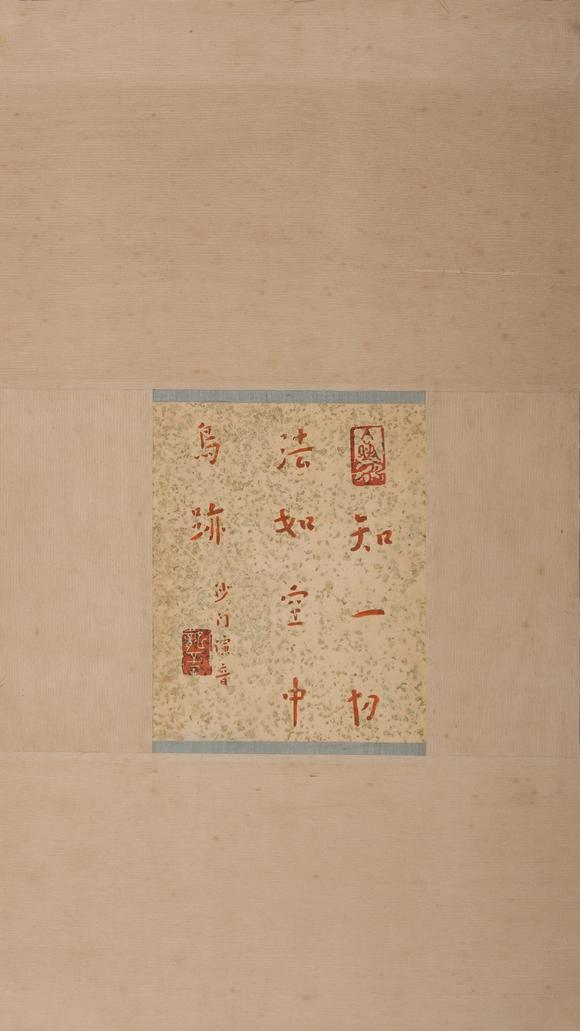 知一切
法如空中
鳥跡
沙门演音